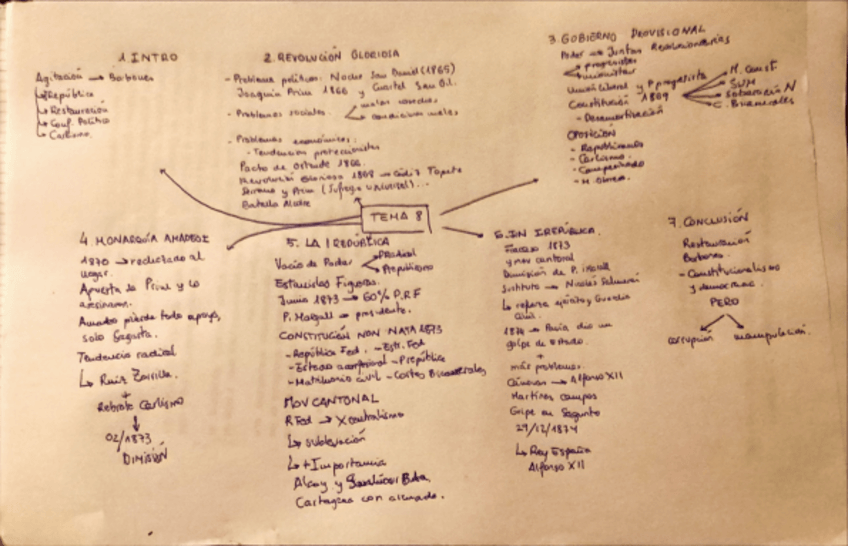 1 INTRO
Agitación → Borbones
República
Restauración
Conf. Político
Carlismo.
2. REVOLUCIÓN GLORIOSA
- Problemas políticos: Noche San Daniel (1865)
Joaquín Prim 1866 y Cuartel San Gil.
- Problemas sociales.
malas cosechas
condiciones malas
- Problemas económicos:
- Tendencias proteccionistas
Pacto de Ostende 1866.
Revolución Gloriosa 1868 → Cádiz Topete
Serrano y Prim (Sufragio universal)...
Batalla Alcolea
3. GOBIERNO PROVISIONAL
Poder → Juntas Revolucionarias
progresistas
unionistas
Unión Liberal y P progresista
Constitución 1869
M. Const.
SUM
Soberanía N
C. Bicamerales
- Desamortización
OPOSICIÓN
- Republicanos
- Carlismo.
- Campesinado
- M. obrero.
TEMA 8
4 MONARQUÍA AMADEO I
1870 → reclutado al
lugar.
Apuesta de Prim y lo
asesinaron.
Amadeo pierde todo apoyo,
solo Sagasta.
Tendencia radical
Ruiz Zorrilla.
+
Rebrote Carlismo
02/1873
DIMISIÓN
5. LA I REPÚBLICA
Vacío de Poder
P Radical
P republicano
Estanislao Figueras.
Junio 1873 → 60% P.R.F
P. Margall → presidente.
CONSTITUCIÓN NON NATA 1873
- República Fed. - Estr. Fed
- Estado aconfesional - P república
- Matrimonio civil - Cortes Bicamerales
MOV CANTONAL
R Fed → X centralismo
sublevación
+ Importancia
Alcoy y Sanlúcar Bda.
Cartagena con alemanes.
6. FIN I REPÚBLICA.
Fracaso 1873
y mov cantonal
Dimisión de P. Margall
Sustituto → Nicolás Salmerón
refuerza ejército y Guardia
Civil.
1874 → Pavía dio un
golpe de estado.
+
más problemas.
Cánovas → Alfonso XII
Martínez campos
Golpe en Sagunto
29/12/1874
Rey España
Alfonso XII
7. CONCLUSIÓN
Restauración
Borbones.
- Constitucionalismo
y democracia.
PERO
corrupción manipulación.